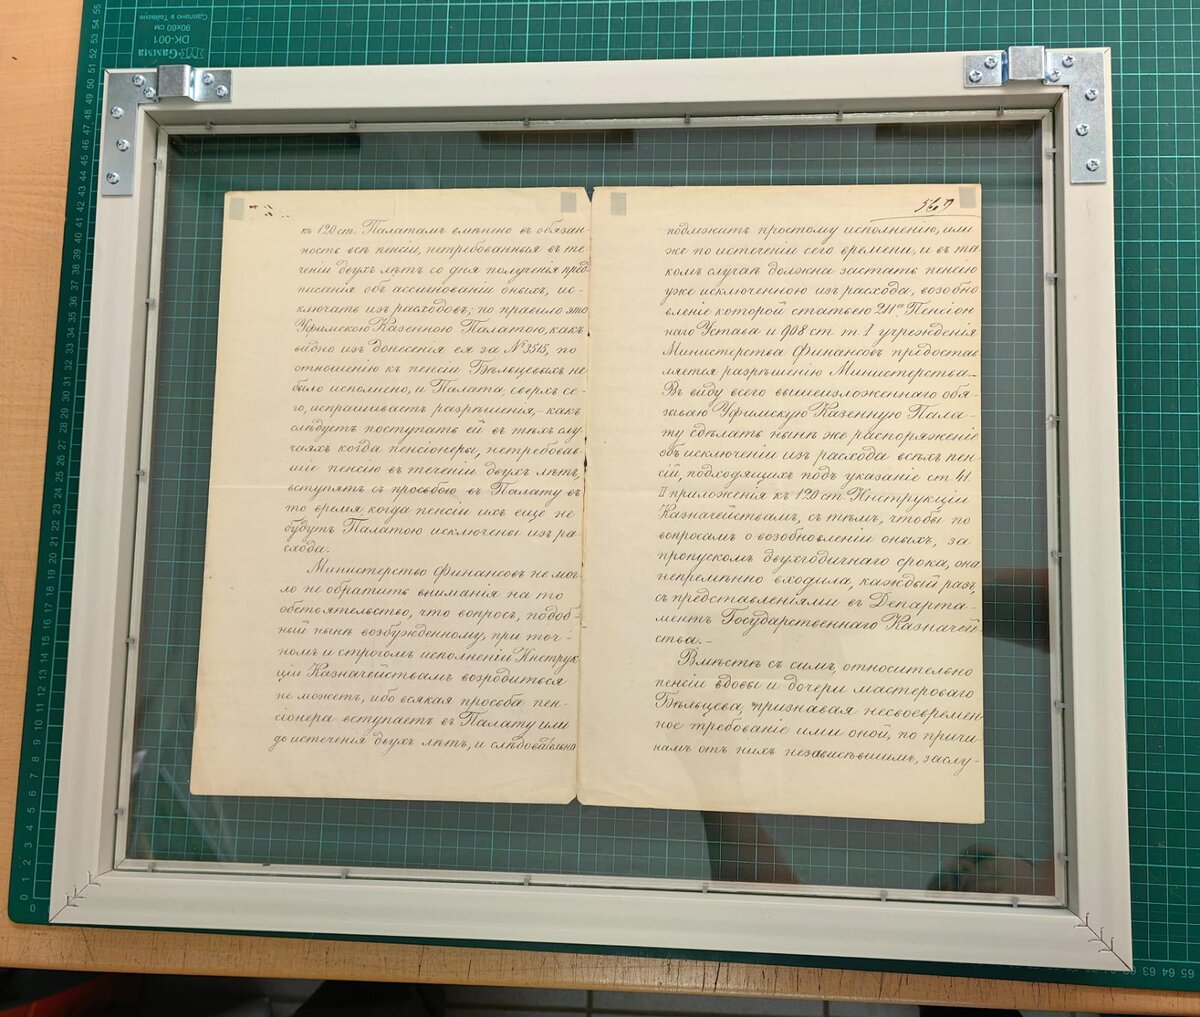 къ 120 ст. Палатамъ вмѣнено въ обязан-
ность всѣ пенсіи, нетребованныя въ те-
ченіи двухъ лѣтъ со дня полученія пред-
писанія объ ассигнованіи оныхъ, ис-
ключать изъ расходовъ; но правило это
Уфимскою Казенною Палатою, какъ
видно изъ донесенія ея за № 3515, по
отношенію къ пенсіи Бѣльцевыхъ не
было исполнено, и Палата, сверхъ се-
го, испрашиваетъ разрѣшенія, - какъ
слѣдуетъ поступать ей въ тѣхъ слу-
чаяхъ когда пенсіонеры, нетребовав
шіе пенсію въ теченіи двухъ лѣтъ,
вступятъ съ просьбою въ Палату въ
то время, когда пенсіи ихъ еще не
будутъ Палатою исключены изъ ра
схода.
Министерство Финансовъ не мог
ло не обратить вниманія на то
обстоятельство, что вопросъ, подоб-
ный нынѣ возбужденному, при точ-
номъ и строгомъ исполненіи Инструк
ціи Казначействамъ возродиться
не можетъ, ибо всякая просьба пен-
сіонера вступаетъ въ Палату или
до истеченія двухъ лѣтъ, и слѣдовательно
подлежитъ простому исполненію, или
же по истеченіи сего времени, и въ та
комъ случаѣ должна застать пенсію
уже исключенною изъ расхода, возобно
вленіе которой статьею 211ю Пенсіон
наго Устава и 908 ст. т. I учрежденія
Министерства Финансовъ предостав
ляется разрѣшенію Министерства.-
Въ виду всего вышеизложеннаго обя-
зываю Уфимскую Казенную Пала-
ту сдѣлать нынѣ же распоряженіе
объ исключеніи изъ расхода всѣхъ пен-
сій, подходящихъ подъ указаніе ст. 41
II приложенія къ 120 ст. Инструкціи
Казначействамъ, съ тѣмъ, чтобы по
вопросамъ о возобновленіи оныхъ, за
пропускомъ двухгодичнаго срока, она
непремѣнно входила, каждый разъ,
съ представленіями въ Департа-
ментъ Государственнаго Казначей
ства.-
Вмѣстѣ съ симъ, относительно
пенсіи вдовы и дочери мастероваго
Бѣльцева, признавая несвоевремен
ное требованіе ими оной, по причи
намъ отъ нихъ независѣвшимъ, заслу-
Gamma
DK-001
90x60 см
Сделано в Тайване